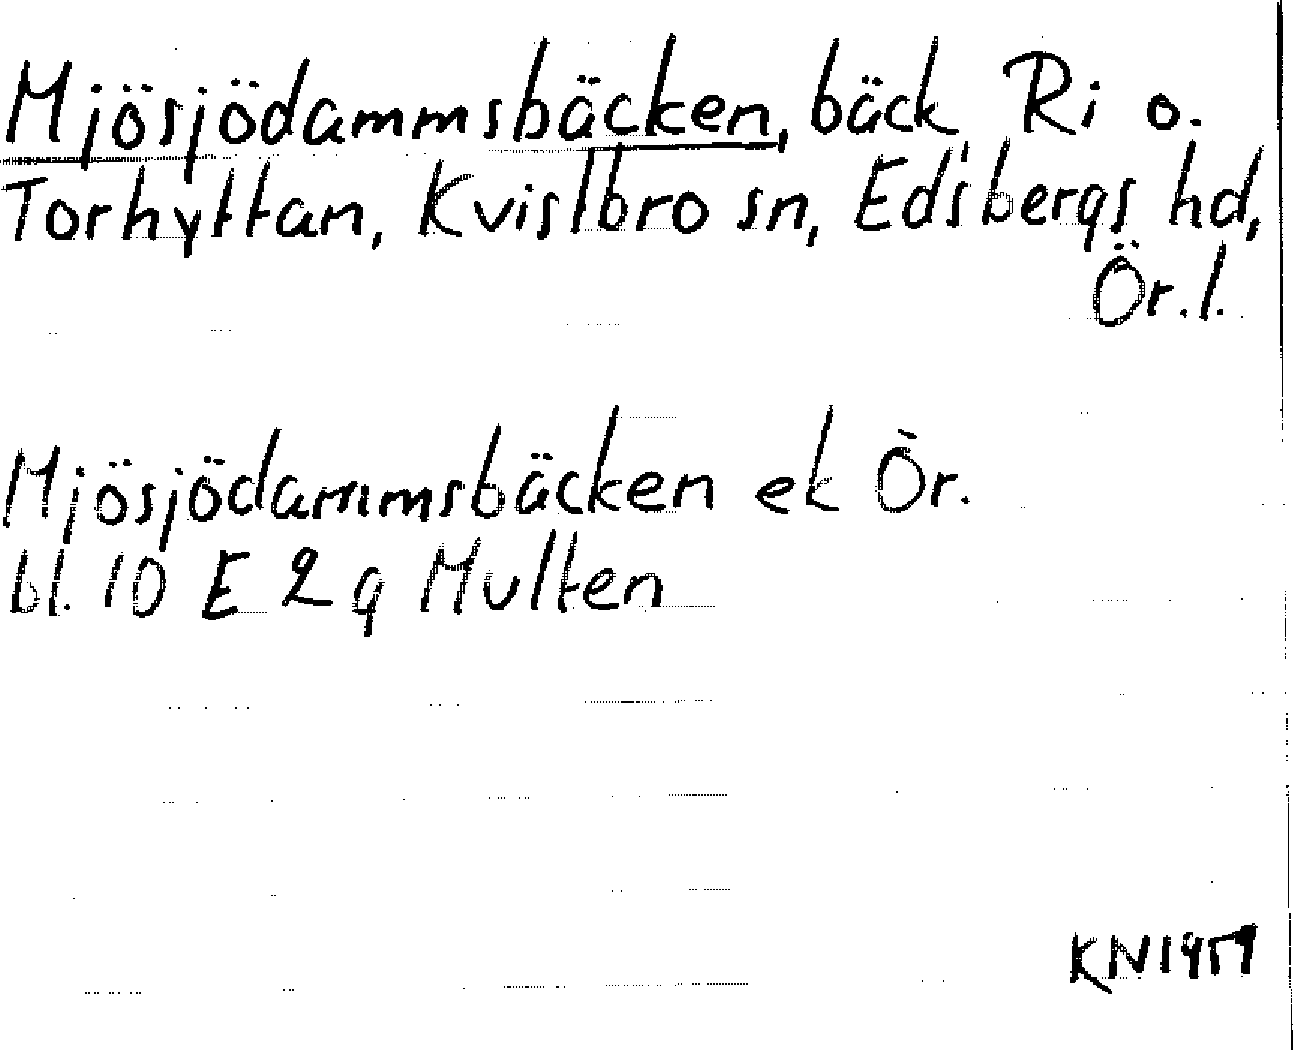 Mjösjödammsbäcken, bäck Ri o.
Torhyttan, Kvistbro sn, Edsbergs hd,
Ör.l.
Mjösjödammsbäcken ek Ör.
bl. 10 E 2 g Multen